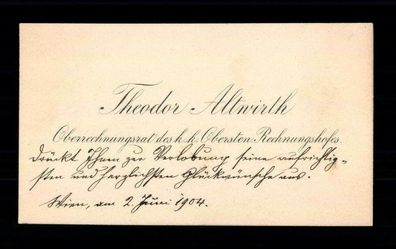 Theodor Altwirth
Oberrechnungsrat des k. k. Obersten Rechnungshofes
drückt Ihnen zur Verlobung seine aufrichtig-
sten und herzlichsten Glückwünsche aus.
Wien, am 2. Juni 1904.